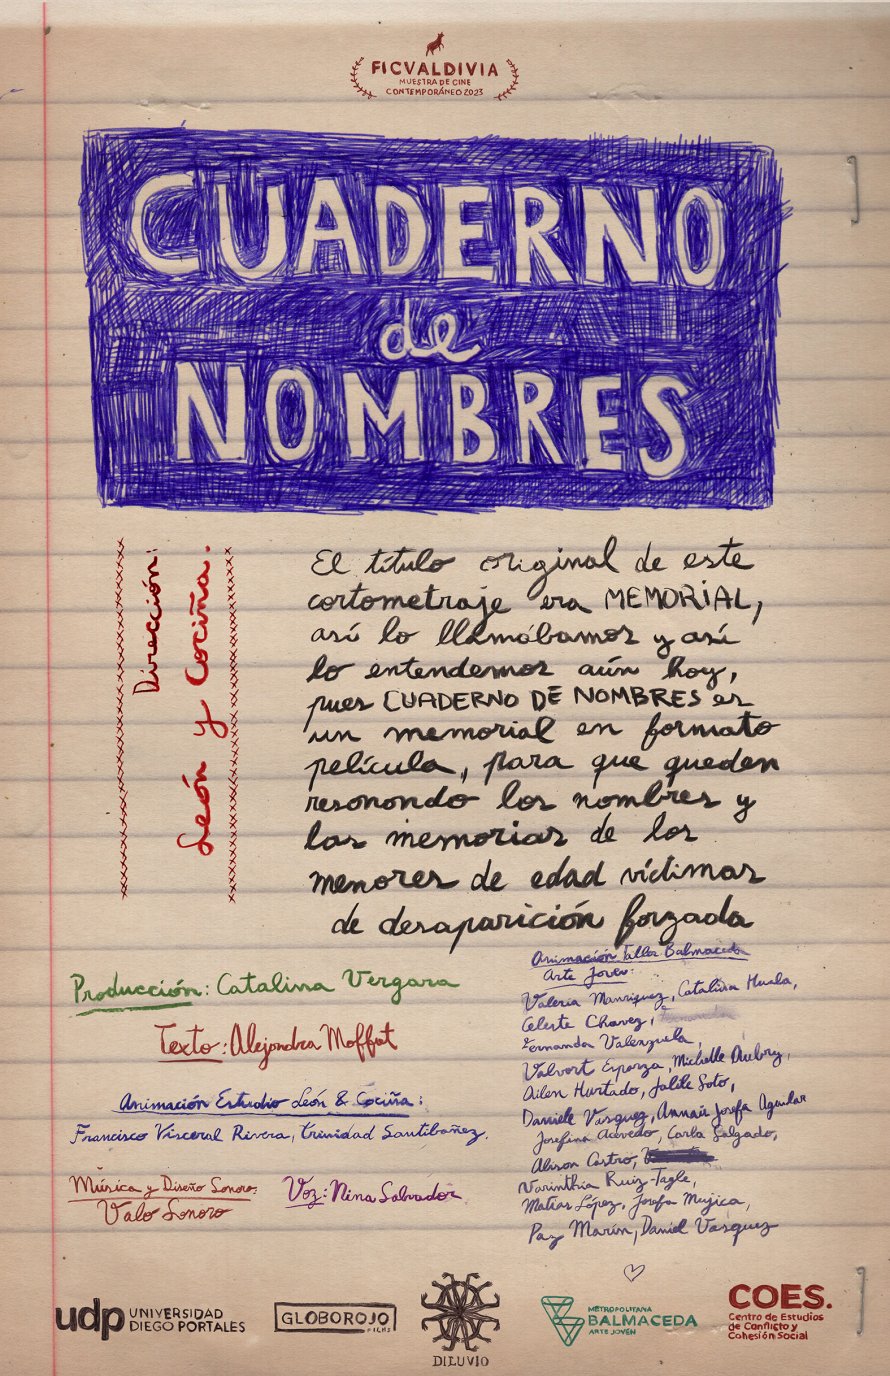 FICVALDIVIA
MUESTRA DE CINE
CONTEMPORÁNEO 2023
CUADERNO
de
NOMBRES
Dirección:
León y Cociña.
El título original de este
cortometraje era MEMORIAL,
así lo llamábamos y así
lo entendemos aún hoy,
pues CUADERNO DE NOMBRES es
un memorial en formato
película, para que queden
resonando los nombres y
las memorias de los
menores de edad víctimas
de desaparición forzada
Producción: Catalina Vergara
Texto: Alejandra Moffat
Animación Estudio León & Cociña:
Francisco Visceral Rivera, Trinidad Santibañez.
Música y Diseño Sonoro:
Valo Sonoro
Voz: Nina Salvador
Animación Taller Balmaceda
Arte Joven:
Valeria Manriquez, Catalina Huala,
Celeste Chavez,
Fernanda Valenzuela,
Valvort Esparza, Michelle Aubry,
Ailen Hurtado, Jalile Soto,
Daniele Vasquez, Annais Josefa Aguilar
Josefina Acevedo, Carla Salgado,
Alison Castro,
Varinthia Ruiz-Tagle,
Matías López, Josefa Mujica,
Paz Marín, Daniel Vasquez
udp UNIVERSIDAD
DIEGO PORTALES
GLOBOROJO
FILMS
DILUVIO
METROPOLITANA
BALMACEDA
ARTE JOVEN
COES.
Centro de Estudios
de Conflicto y
Cohesión Social